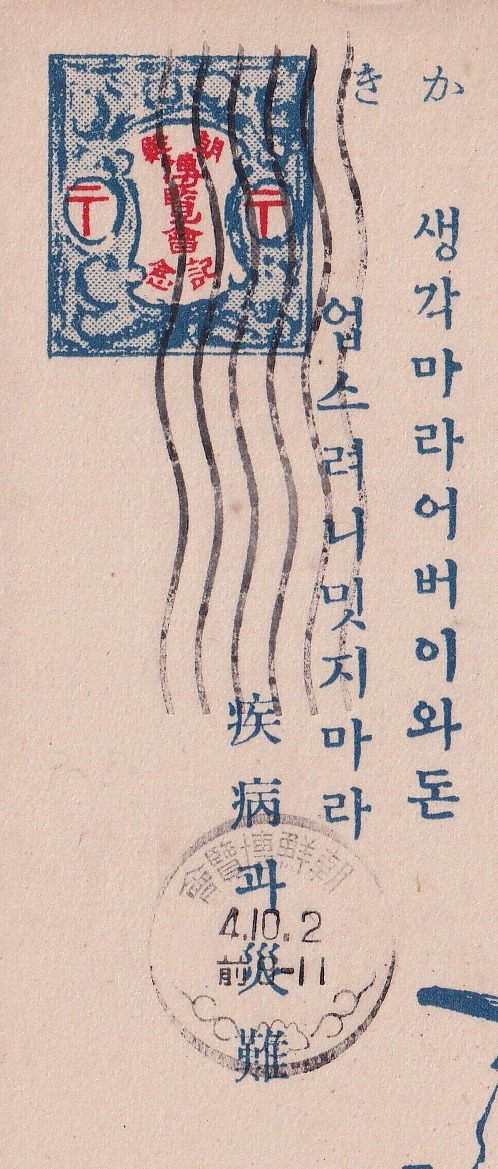 かき
생각마라어버이와돈
업스려니밋지마라
疾病과災難
朝鮮
博覽會
記念
〒
〒
朝鮮博覽會
4.10.2